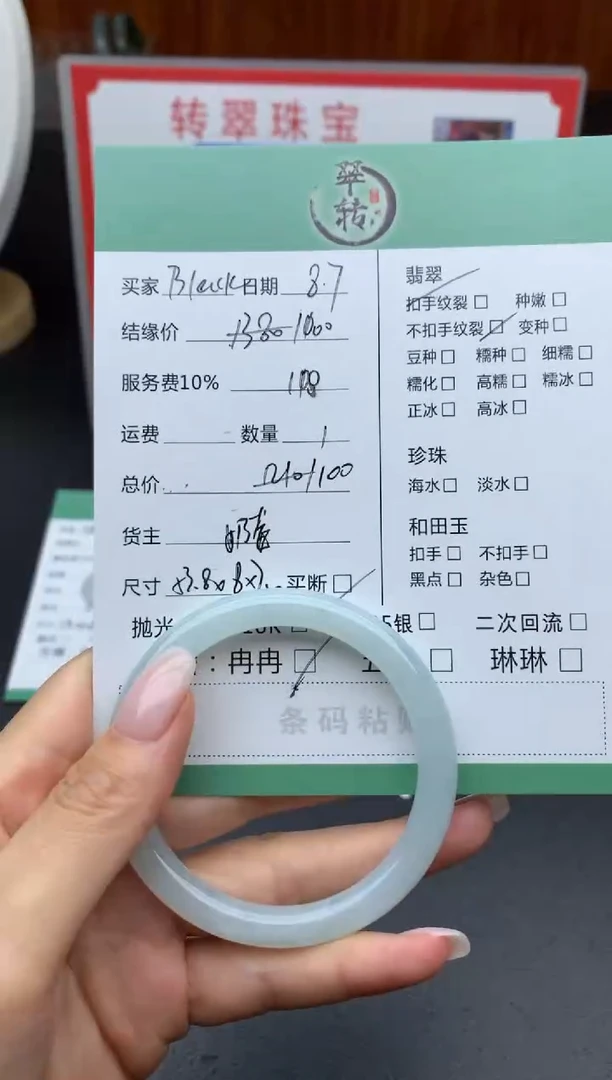 转翠珠宝
翠
转
买家 Black 日期 8.7
结缘价 1380 1000
服务费10%
运费 数量 1
总价 1100
货主
尺寸 53.8x8x7. 买断□
抛光 银□ 二次回流□
：冉冉□ □ 琳琳□
条码粘贴
翡翠
扣手纹裂□ 种嫩□
不扣手纹裂□ 变种□
豆种□ 糯种□ 细糯□
糯化□ 高糯□ 糯冰□
正冰□ 高冰□
珍珠
海水□ 淡水□
和田玉
扣手□ 不扣手□
黑点□ 杂色□